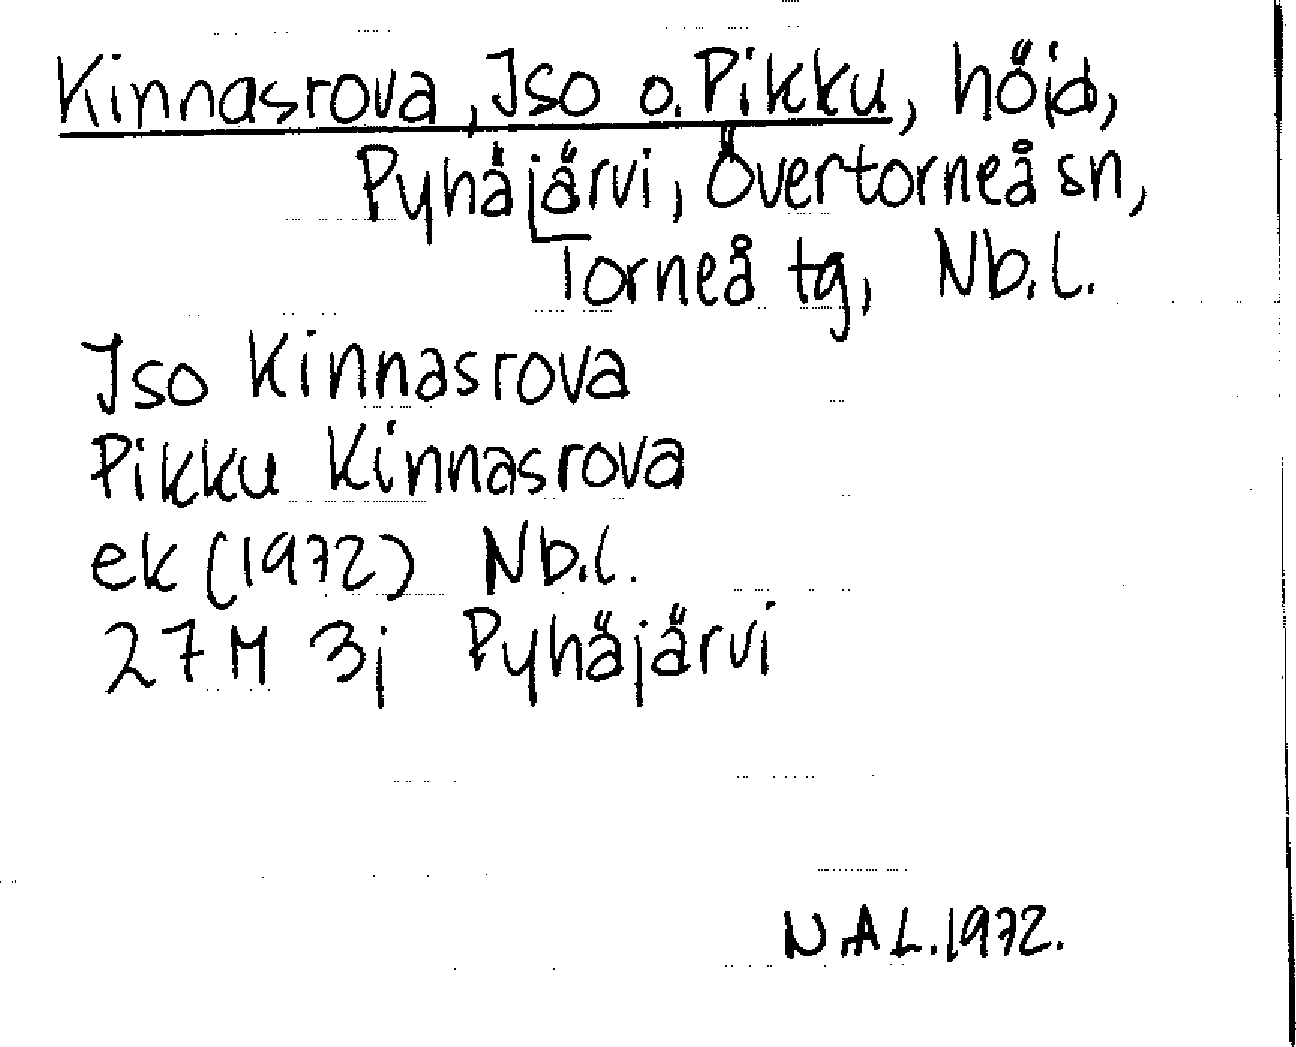 Kinnasrova, Iso o. Pikku, höjd,
Pyhäjärvi, Övertorneå sn,
Torneå tg, Nb.l.
Iso Kinnasrova
Pikku Kinnasrova
ek (1972) Nb.l.
27 M 3j Pyhäjärvi
N.A L. 1972.